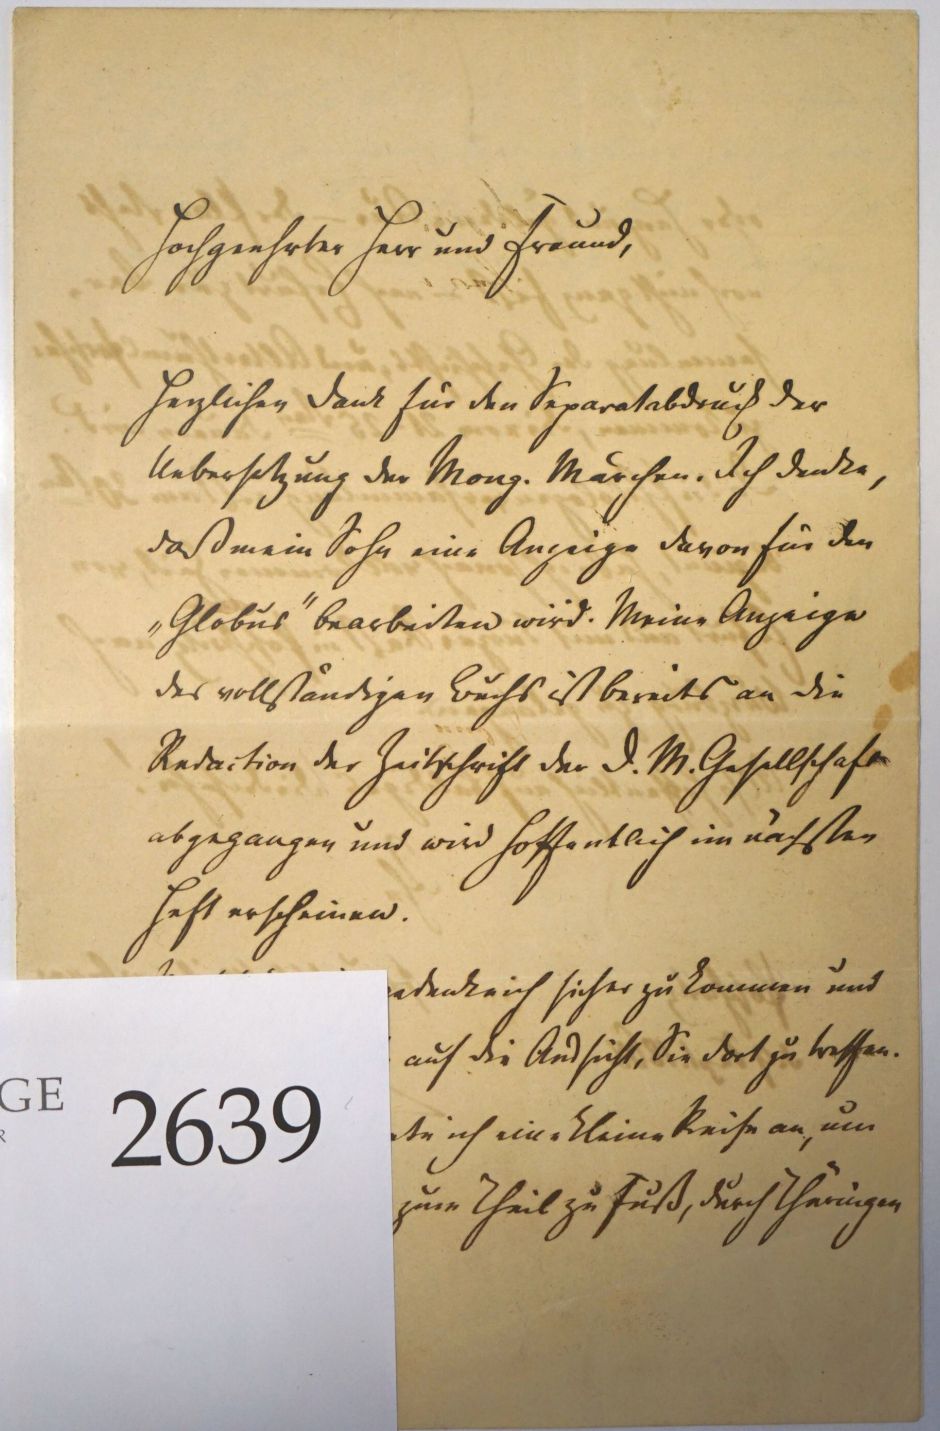 Hochgeehrter Herr und Freund,
Herzlichen Dank für den Separatabdruck der
Uebersetzung der Mong. Märchen. Ich denke,
daß mein Sohn eine Anzeige davon für den
„Globus" bearbeiten wird. Meine Anzeige
des vollständigen Buchs ist bereits an die
Redaction der Zeitschrift der D. M. Gesellschaft
abgegangen und wird hoffentlich im nächsten
Heft erscheinen.
gedenke ich sicher zu kommen und
auf die Aussicht, Sie dort zu treffen.
ich eine kleine Reise an, um
zum Theil zu Fuß, durch Thüringen
GE
R
2639